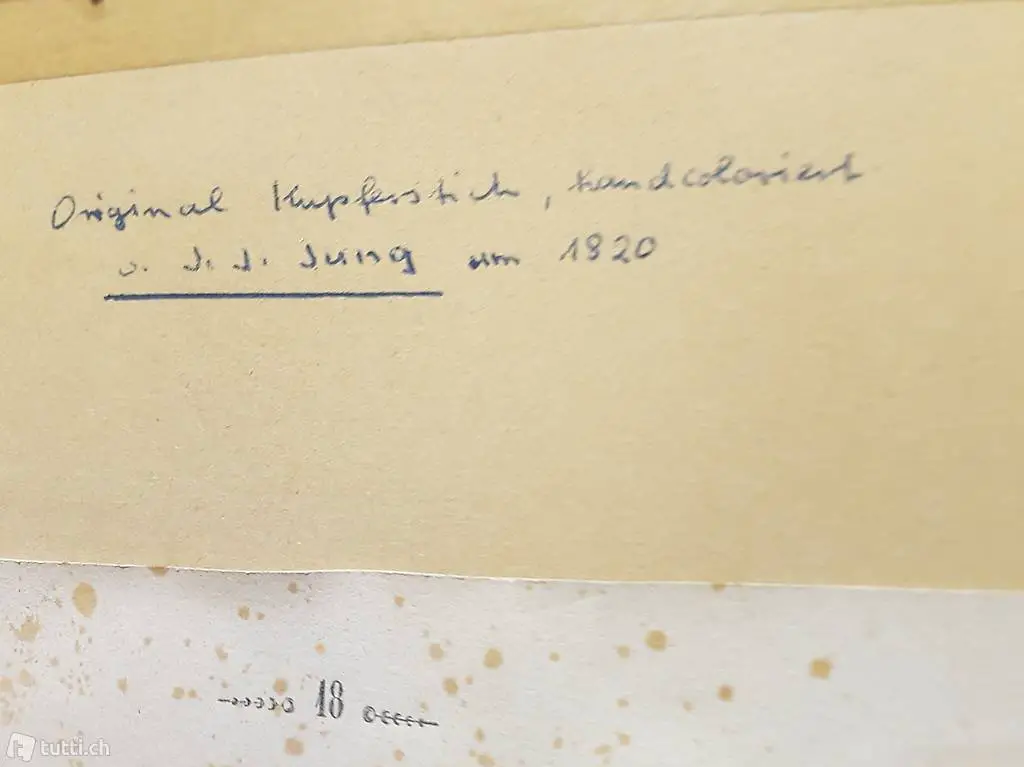 Original Kupferstich, handcoloriert
v. J. J. Jung um 1820
18
tutti.ch